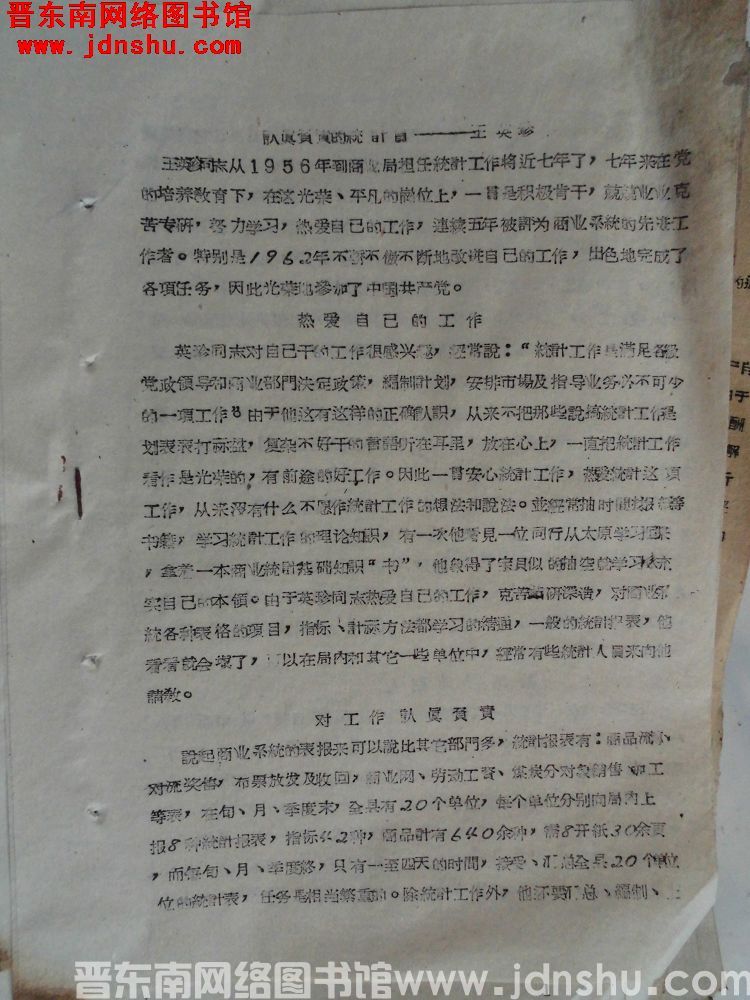 晋东南网络图书馆
www.jdnshu.com
认真負責的統計員———王英珍
王英珍同志从1956年到商业局担任統計工作将近七年了，七年来在党
的培养敎育下，在这光荣、平凡的崗位上，一貫是积极肯干，兢兢业业克
苦专研，努力学习，热爱自己的工作，連續五年被評为商业系統的先进工
作者。特别是1962年不断地改进自己的工作，出色地完成了
各項任务，因此光荣地參加了中国共产党。
热爱自己的工作
英珍同志对自己干的工作很感兴趣，經常說：“統計工作是满足各級
党政領导和商业部門决定政策，編制計划，安排市場及指导业务必不可少
的一項工作”由于他这有这样的正确认識，从来不把那些說搞統計工作是
划表表打祘盘，复杂不好干的言語听在耳里，放在心上，一直把統計工作
看作是光荣的，有前途的好工作。因此一貫安心統計工作，热爱統計这項
工作，从来沒有什么不愿作統計工作的想法和說法。並經常抽时間
书籍，学习統計工作的理论知识，有一次他看見一位同行从太原学习回来
，拿着一本商业統計基础知識“书”，他象得了宝貝似的抽空就学习
实自己的本領。由于英珍同志热爱自己的工作，克苦鉆研深造，对商业系
統各种表格的項目，指标、計祘方法都学习的精通，一般的統計报表，他
看看就会填了，可以在局內和其它一些单位中，經常有些統計人員来向他
請敎。
对工作认眞負責
說起商业系統的表报来可以說比其它部門多，統計报表有：商品流轉
对流奖售，布票放发及收回，商业网、劳动工资、煤炭分对象銷售、加工
等表，在旬、月、季度末，全县有20个单位，每个单位分别向局內上
报8种統計报表，指标42种，商品計有640余种，需8开紙30余頁
，而每旬、月、季度終，只有一至四天的时間，接受、汇总全县20个单
位的統計表，任务是相当繁重的。除統計工作外，他还要汇总、編制、上
晋东南网络图书馆www.jdnshu.com